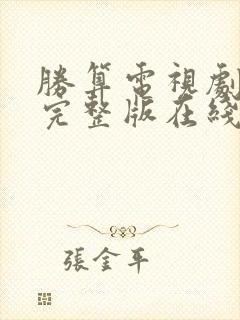 勝算電視劇
完整版在綫
張金平